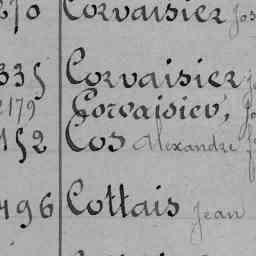 270 Corvaisier Jos
335 Corvaisier
2179 Corvaisier,
152 Cos Alexandre
496 Cottais Jean